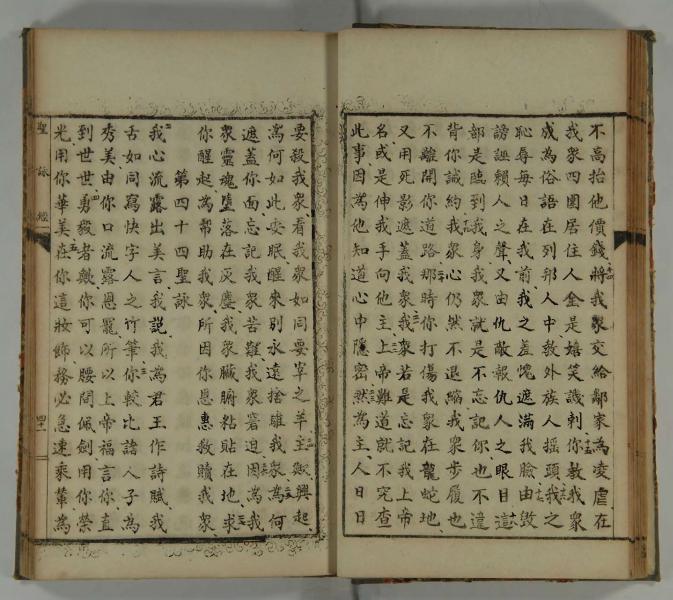 不高抬他價錢將我衆交給鄰家為凌虐在
我衆四圍居住人全是嬉笑譏刺你教我衆
成為俗語在列邦人中教外族人摇頭我之
恥辱每日在我前我之羞愧遮滿我臉由毀
謗誣賴人之聲又由仇敵報仇人之眼目這
都是臨到我身我衆就是不忘記你也不違
背你誡約我衆心仍然不退縮我衆步履也
不離開你道路那時你打傷我衆在龍蛇地
又用死影遮蓋我衆我衆若是忘記我上帝
名或是伸我手向他主上帝難道就不究查
此事因為他知道心中隱密然為主人日日
要殺我衆看我衆如同要宰之羊主歟興起
為何如此安眠醒來别永遠捨離我衆為何
遮蓋你面忘記我衆苦難我衆窘迫因為我
衆靈魂墮落在灰塵我衆臟腑粘貼在地求
你醒起為幫助我衆所因你恩惠救贖我衆
第四十四聖詠
我心流露出美言我説我為君王作詩賦我
舌如同寫快字人之竹筆你較比諸人子為
秀美由你口流露恩寵所以上帝福言你直
到世世勇毅者歟你可以腰間佩劍用你榮
光用你華美在你這妝飾務必急速乘輦為
聖詠經
四十